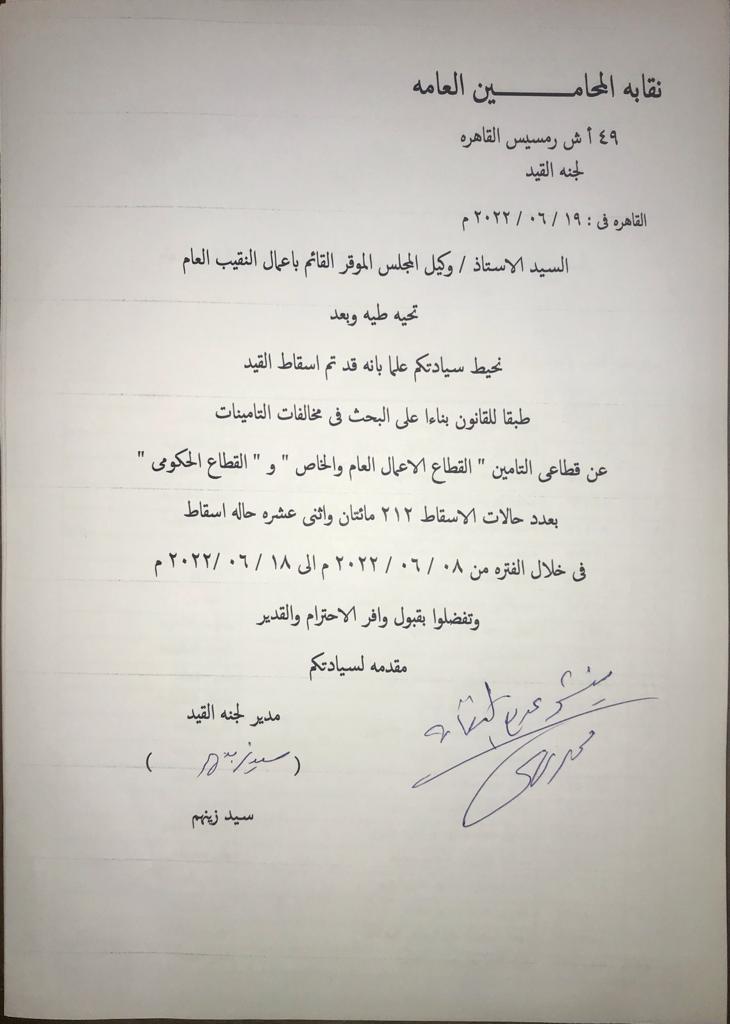 نقابه المحامـــــــــين العامه
٤٩ أ ش رمسيس القاهره
لجنه القيد
القاهره فى : ١٩ / ٠٦ / ٢٠٢٢ م
السيد الاستاذ / وكيل المجلس الموقر القائم باعمال النقيب العام
تحيه طيه وبعد
نحيط سيادتكم علما بانه قد تم اسقاط القيد
طبقا للقانون بناءا على البحث فى مخالفات التامينات
عن قطاعى التامين " القطاع الاعمال العام والخاص " و " القطاع الحكومى "
بعدد حالات الاسقاط ٢١٢ مائتان واثنى عشره حاله اسقاط
فى خلال الفتره من ٠٨ / ٠٦ / ٢٠٢٢ م الى ١٨ / ٠٦ /٢٠٢٢ م
وتفضلوا بقبول وافر الاحترام والقدير
مقدمه لسيادتكم
مدير لجنه القيد
( )
سيد زينهم